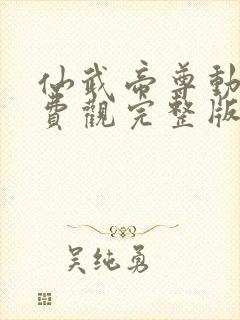 仙武帝尊動
費觀完整版
吴纯勇